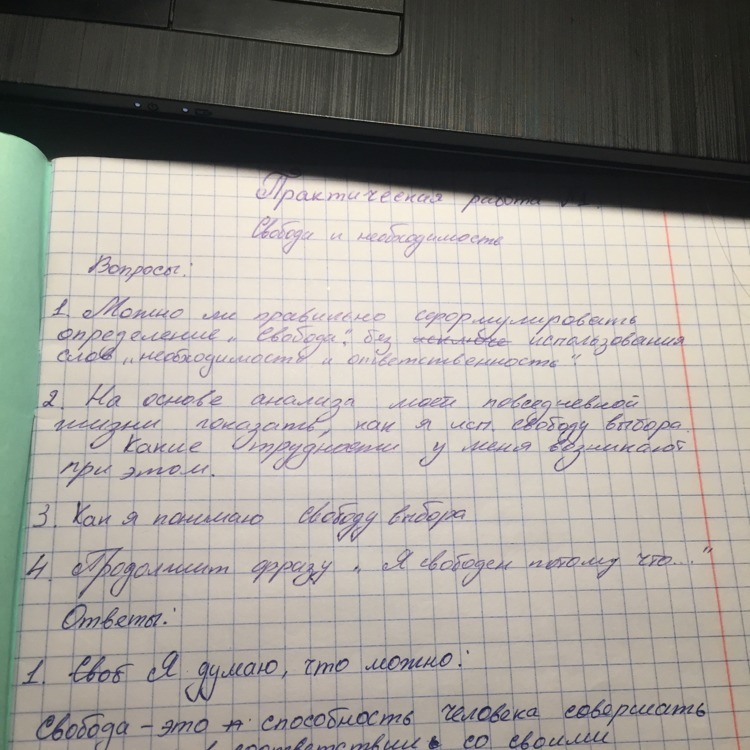 Практическая работа
Свобода и необходимость
Вопросы:
1. Можно ли правильно сформулировать
определение „Свобода", без использования
слов „необходимость и ответственность".
2. На основе анализа моей повседневной
жизни показать, как я исп. свободу выбора.
Какие трудности у меня возникают
при этом.
3. Как я понимаю свободу выбора
4. Продолжит фразу „Я свободен потому что..."
Ответы:
1. Своб Я думаю, что можно:
Свобода – это способность человека совершать
в соответствии со своими